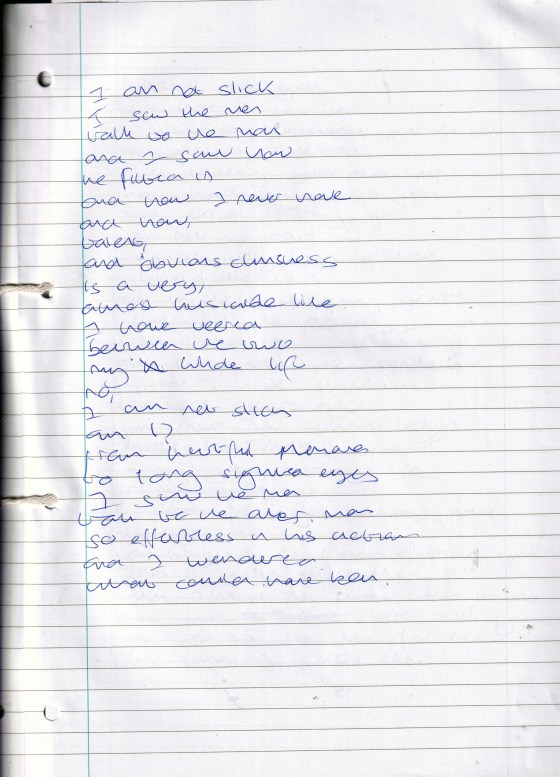 I am not slick
I saw the men
talk to the man
and I saw how
he fitted in
and how I never have
and how,
talent,
and obvious clumsiness
is a very,
almost invisible line
I have veered
between the two
my whole life
no,
I am not slick
am I?
from hurtful
to long sighted eyes
I saw the men
talk to the man
so effortless in his actions
and I wondered
what could have been.